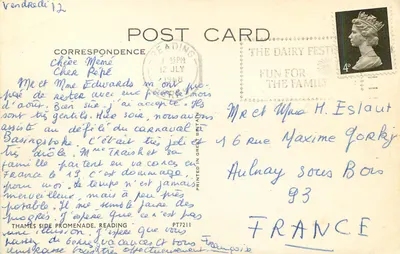 Vendredi 12
POST CARD
CORRESPONDENCE
Chère Mémé
Cher Pépé
Mr et Mme Edwards m'ont pro-
posé de rester avec eux jusqu'
d'août. Bien sûr, j'ai accepté. Ils
sont très gentils. Hier soir, nous avons
assisté au défilé du carnaval de
Basingstoke. C'était très joli et
très drôle. Mme Trasket et sa
famille partent en vacances en
France le 19. C'est dommage,
pour moi. Le temps n'est jamais
merveilleux, mais à peu près
potable. Il me semble faire des
progrès. J'espère que ce n'est pas
une illusion. J'espère que vous
passez de bonnes vacances et vous
embrasse bien très affectueusement Françoise
THAMES SIDE PROMENADE, READING
PT7211
PRINTED IN
READING
PM
12 JLY
1968
THE DAIRY FESTI
FUN FOR
THE FAMILY
4D
Mr et Mme H. Eslaut
16 rue Maxime Gorkij
Aulnay sous Bois
93
FRANCE